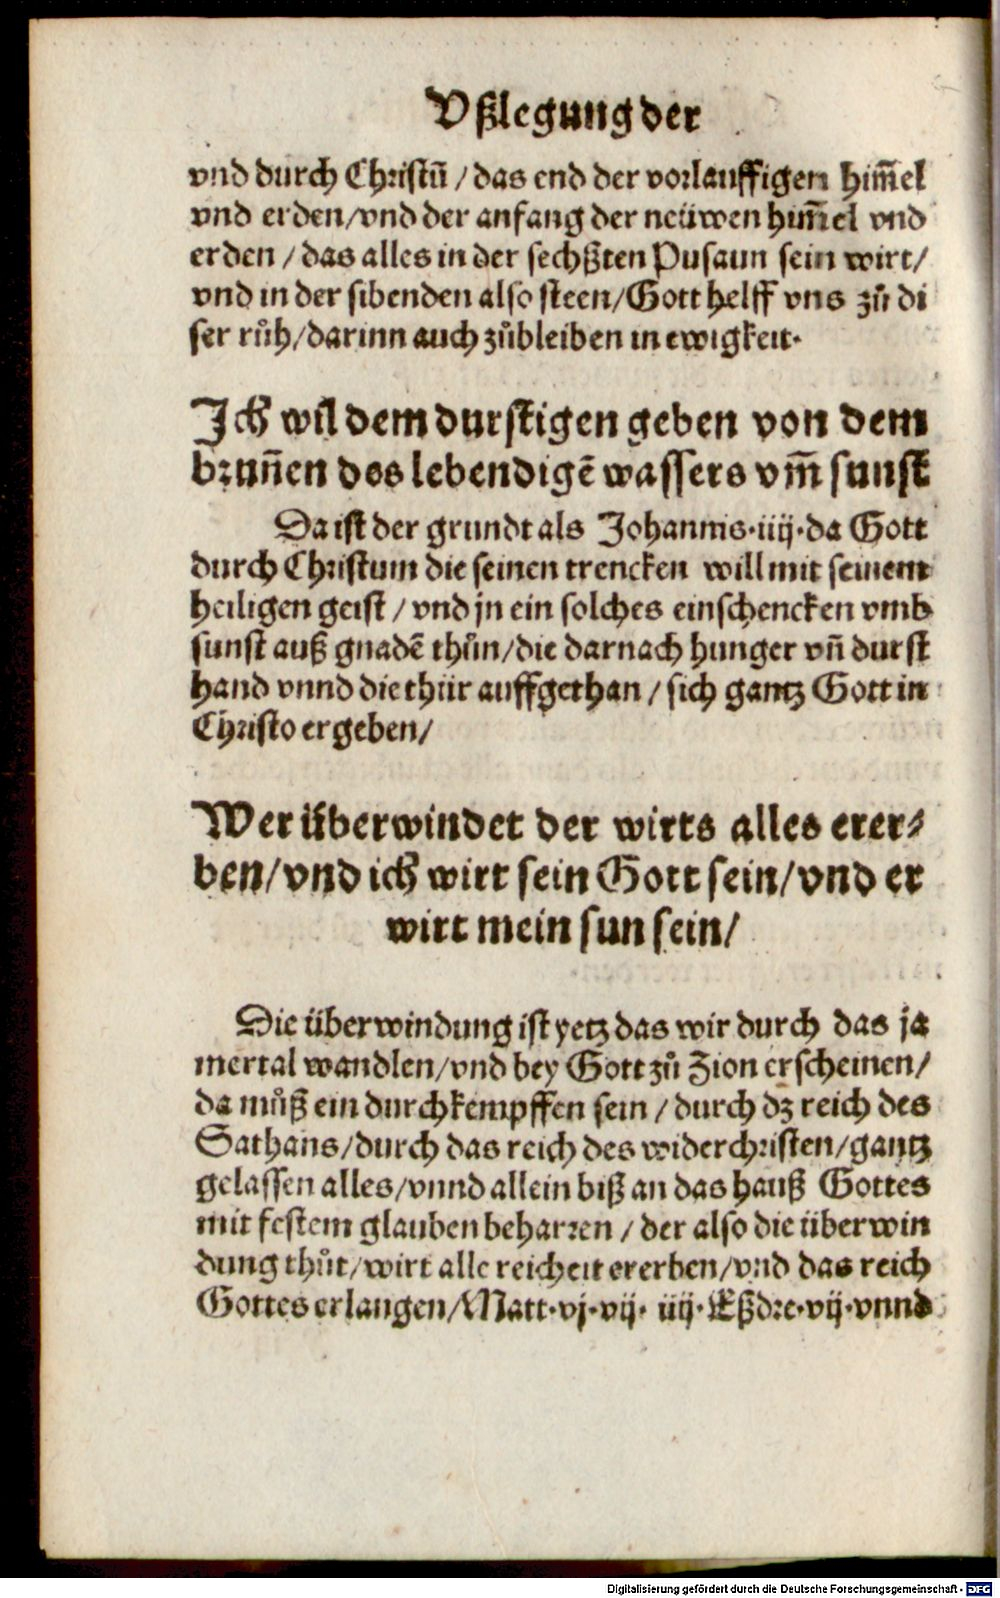 Vßlegung der
vnd durch Christū / das end der vorlauffigen him̄el
vnd erden/vnd der anfang der neüwen him̄el vnd
erden / das alles in der sechßten Pusaun sein wirt/
vnd in der sibenden also steen/Gott helff vns zů di
ser růh/darinn auch zůbleiben in ewigkeit.
Ich wil dem durstigen geben von dem
brun̄en des lebendigē wassers vm̄ sunst
Da ist der grundt als Johannis.iiij.da Gott
durch Christum die seinen trencken will mit seinem
heiligen geist / vnd jn ein solches einschencken vmb
sunst auß gnadē thůn/die darnach hunger vn̄ durst
hand vnnd die thür auffgethan / sich gantz Gott in
Christo ergeben/
Wer überwindet der wirts alles erer⸗
ben/vnd ich wirt sein Gott sein/vnd er
wirt mein sun sein/
Die überwindung ist yetz das wir durch das ja
mertal wandlen/vnd bey Gott zů Zion erscheinen/
da můß ein durchkempffen sein / durch dz reich des
Sathans/durch das reich des widerchristen/gantz
gelassen alles/vnnd allein biß an das hauß Gottes
mit festem glauben beharren / der also die überwin
dung thůt/wirt alle reicheit ererben/vnd das reich
Gottes erlangen/Matt.vj.vij. iiij.Eßdre.vij.vnnd
Digitalisierung gefördert durch die Deutsche Forschungsgemeinschaft - DFG